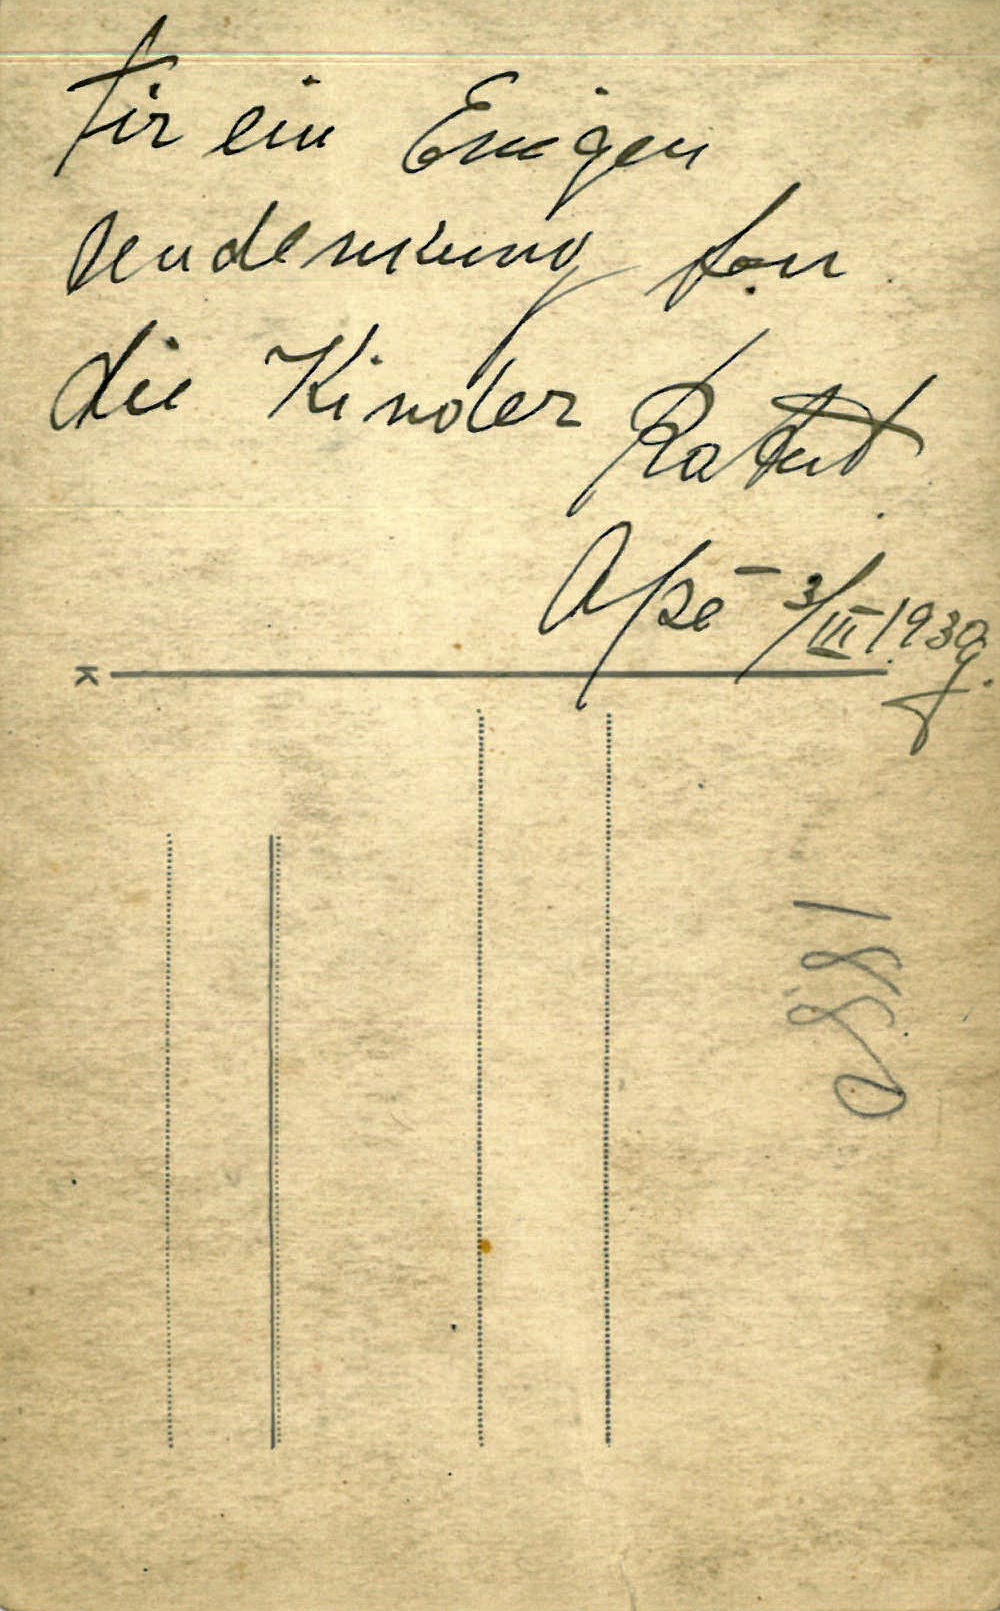 Fir ein Enigen
Aendenkung fon
die Kinder
Apsé - 3/III 1939.
K
1880